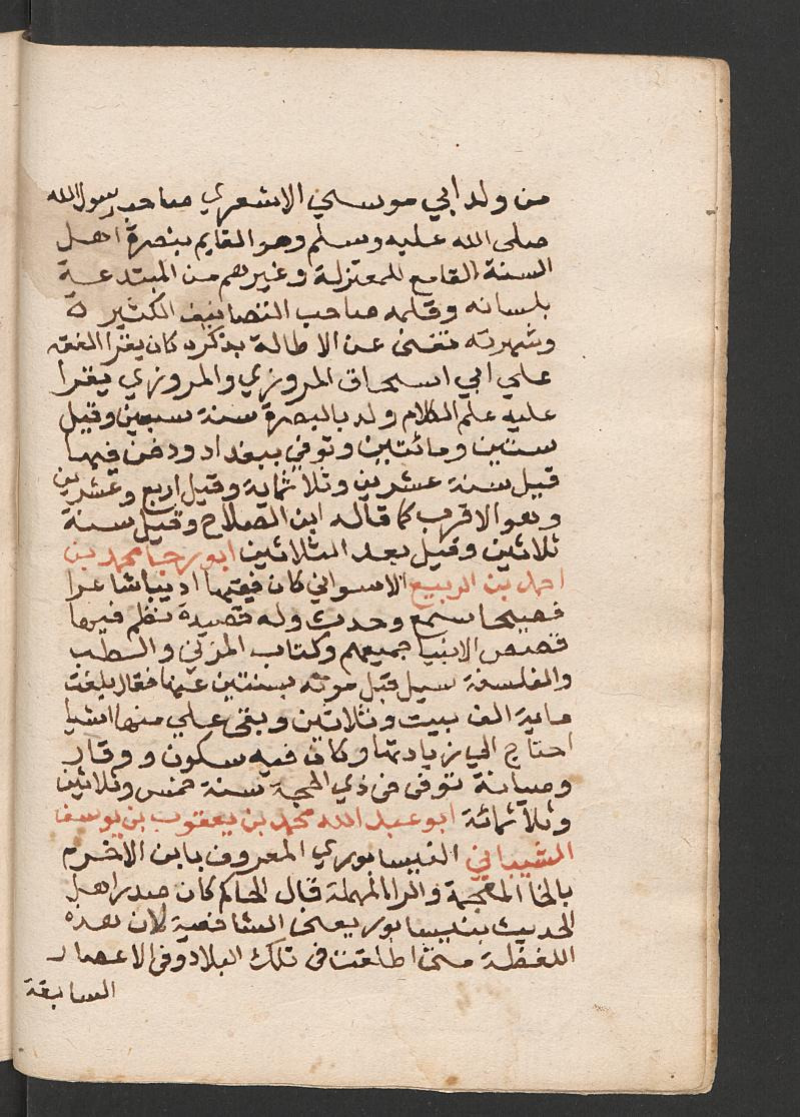 من ولد ابي موسي الاشعري صاحب رسول الله
صلى الله عليه وسلم وهو القايم بنصرة اهل
السنة القامع للمعتزلة وغيرهم من المبتدعة
بلسانه وقلمه صاحب التصانيف الكثيرة
وشهرته تغني عن الاطالة بذكره كان يقرا الفقه
علي ابي اسحاق المروزي والمروزي يقرا
عليه علم الكلام ولد بالبصرة سنة سبعين وقيل
ستين ومائتين وتوفي ببغداد ودفن فيها
قيل سنة عشرين وثلاثماية وقيل اربع وعشرين
وهو الاقرب كما قاله ابن الصلاح وقيل سنة
ثلاثين وقيل بعد الثلاثين ابو رجا محمد بن
احمد بن الربيع الاسواني كان فقيها اديبا شاعرا
فصيحا سمع وحدث وله قصيدة نظم فيها
قصص الانبيا جميعهم وكتاب المزني والطب
والفلسفة سيل قبل موته بسنتين عنها فقال بلغت
ماية الف بيت وثلاثين وبقي علي منها اشيا
احتاج الي زيادتها وكان فيه سكون ووقار
وصيانة توفى فى ذي الحجة سنة خمس وثلاثين
وثلاثمائة ابو عبد الله محمد بن يعقوب بن يوسف
الشيباني النيسابوري المعروف بابن الاخرم
بالخا المعجمة والرا المهملة قال الحاكم كان صدر اهل
الحديث بنيسابور يعني الشافعية لان هذه
اللفظة متى اطلقت فى تلك البلاد وفى الاعصار
السابقة